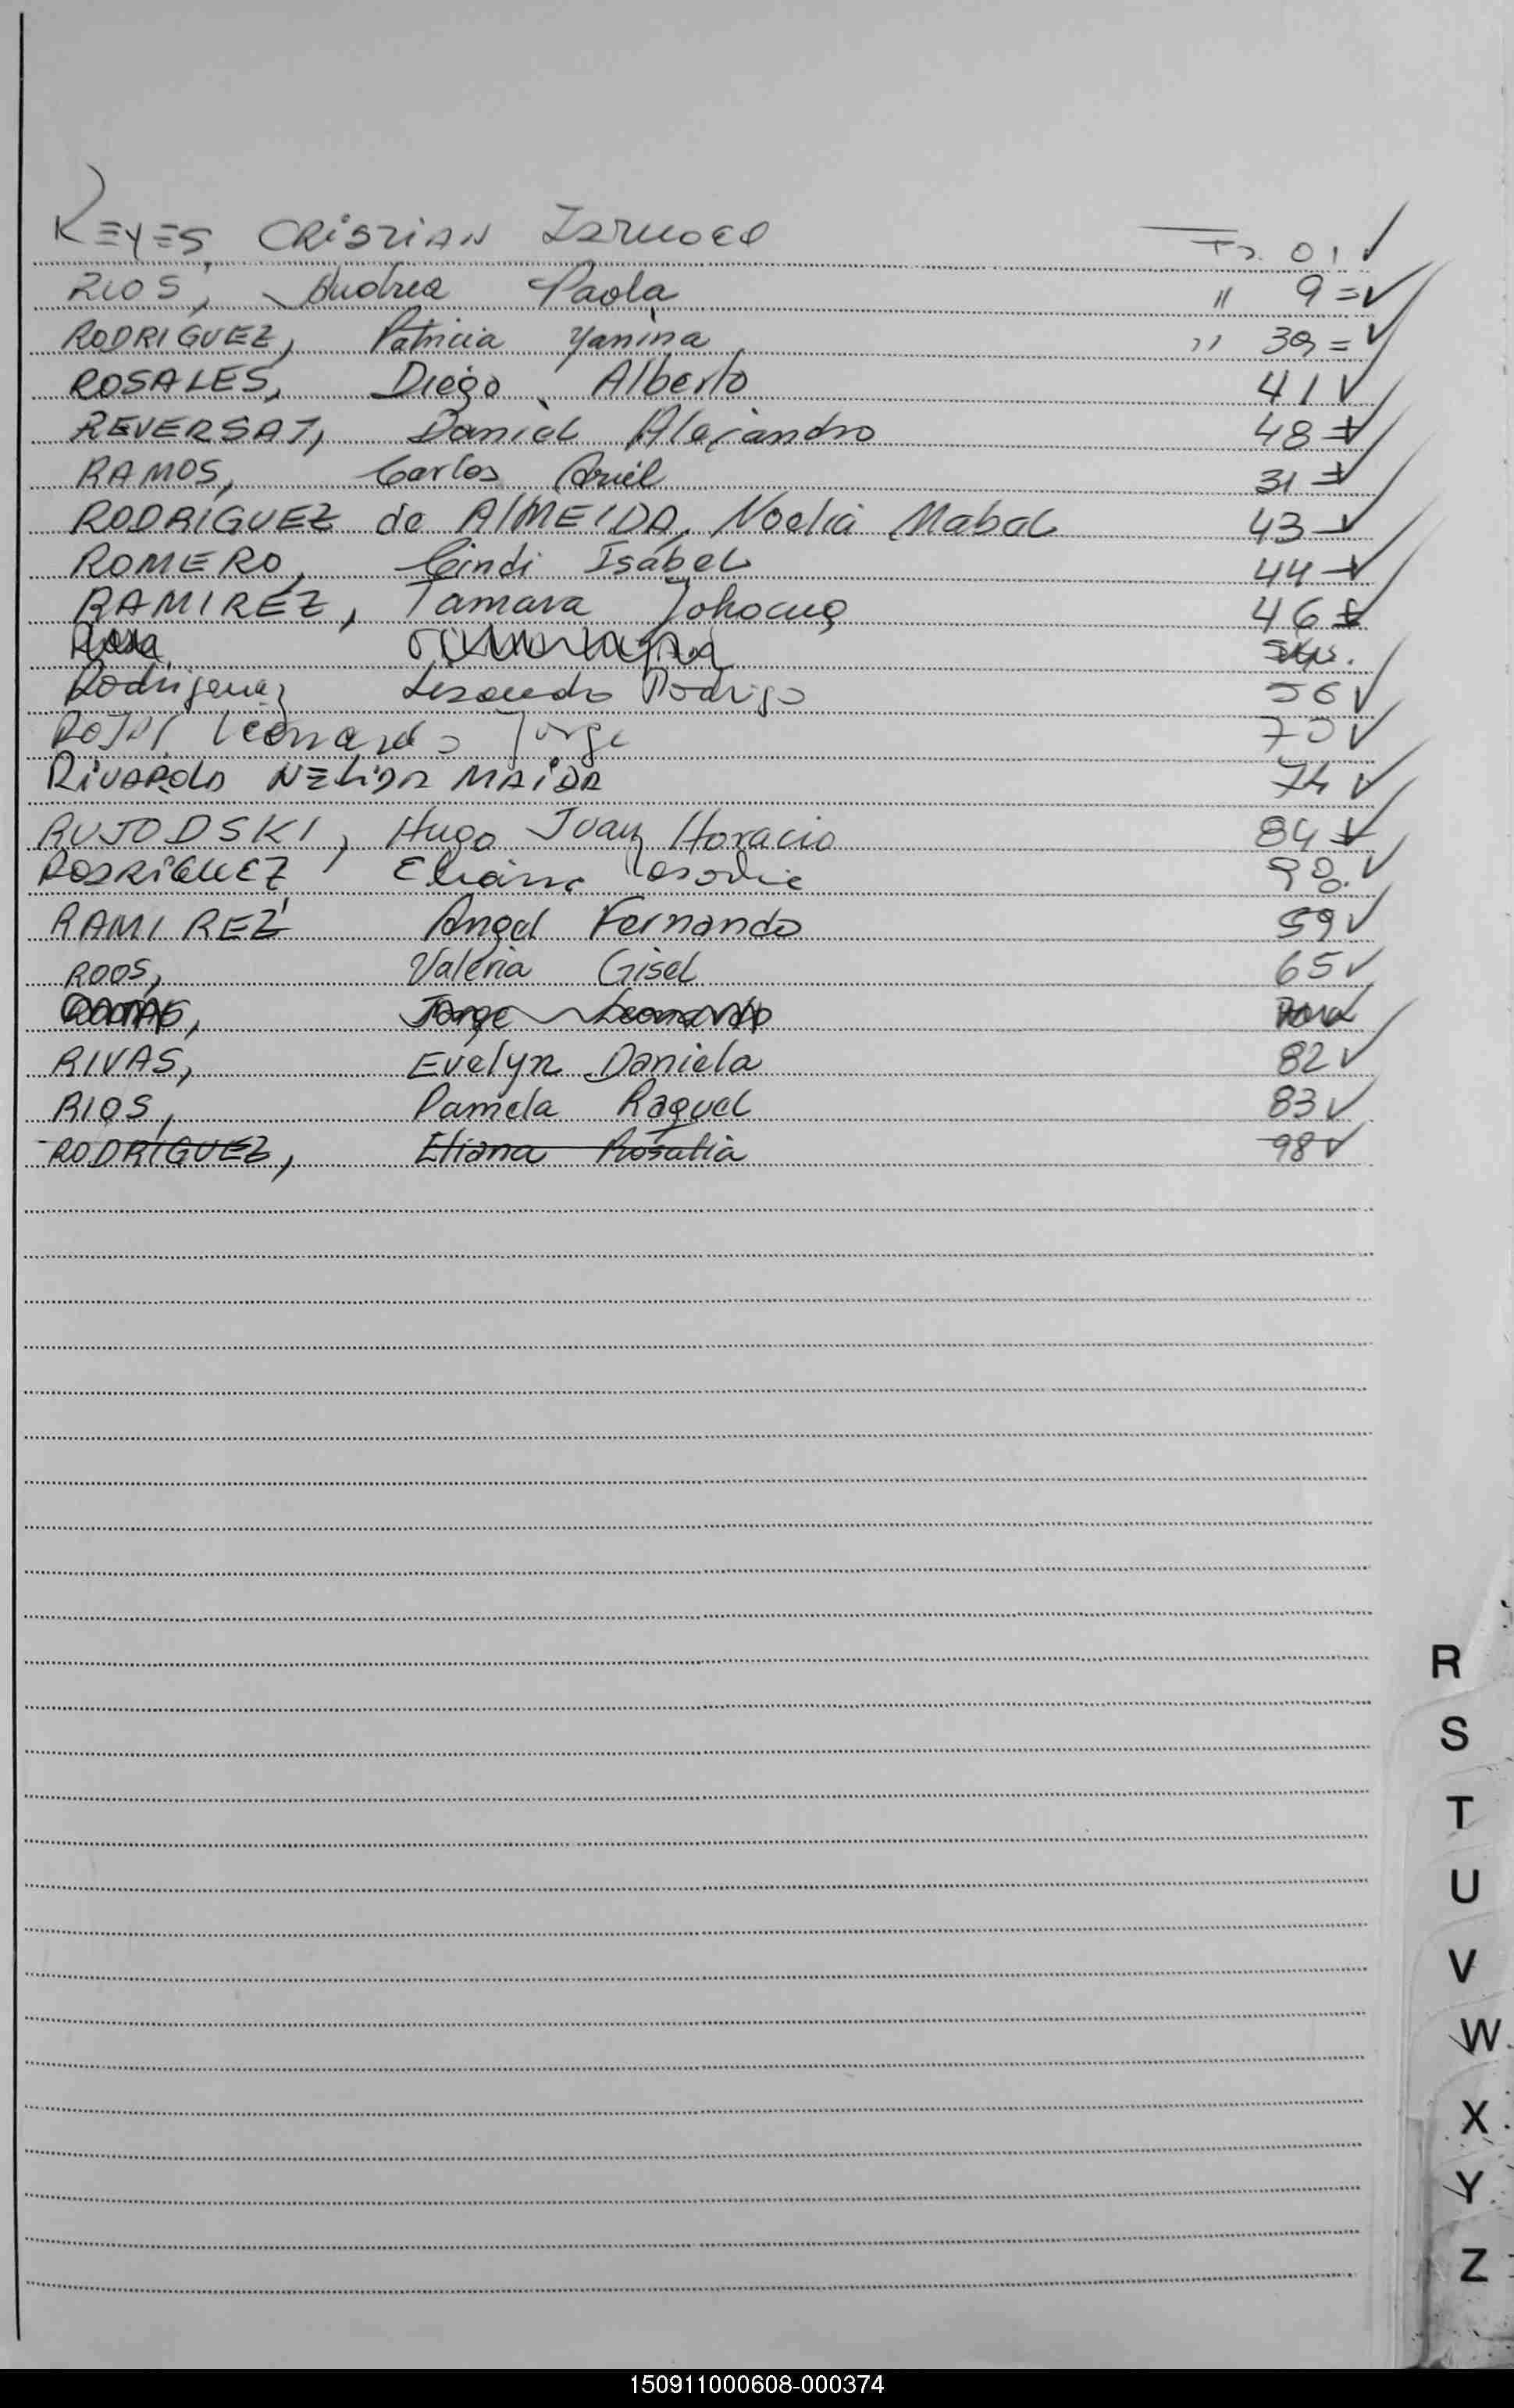 REYES, CRISTIAN Fs. 01 ✓
RIOS, Andrea Paola " 9 = ✓
RODRIGUEZ, Patricia Yanina " 39 = ✓
ROSALES, Diego Alberto 41 ✓
REVERSAT, Daniel Alejandro 48 = ✓
RAMOS, Carlos Ariel 31 = ✓
RODRIGUEZ de ALMEIDA, Noelia Mabel 43 - ✓
ROMERO, Cindi Isabel 44 - ✓
RAMIREZ, Tamara Johocuę 46 = ✓
Rodriguez Lisandro Rodrigo 56 ✓
ROJAS, Leonardo Jorge 70 ✓
RIVAROLA NELIDA MAIDA 74 ✓
RUJODSKI, Hugo Juan Horacio 84 = ✓
RODRIGUEZ, Eliana Rosalie 98. ✓
RAMIREZ Angel Fernando 59 ✓
ROOS, Valeria Gisel 65 ✓
Jorge Leonardo
RIVAS, Evelyn Daniela 82 ✓
RIOS, Pamela Raquel 83 ✓
RODRIGUEZ, Eliana Rosalia 98 ✓
R
S
T
U
V
W
X
Y
Z
150911000608-000374